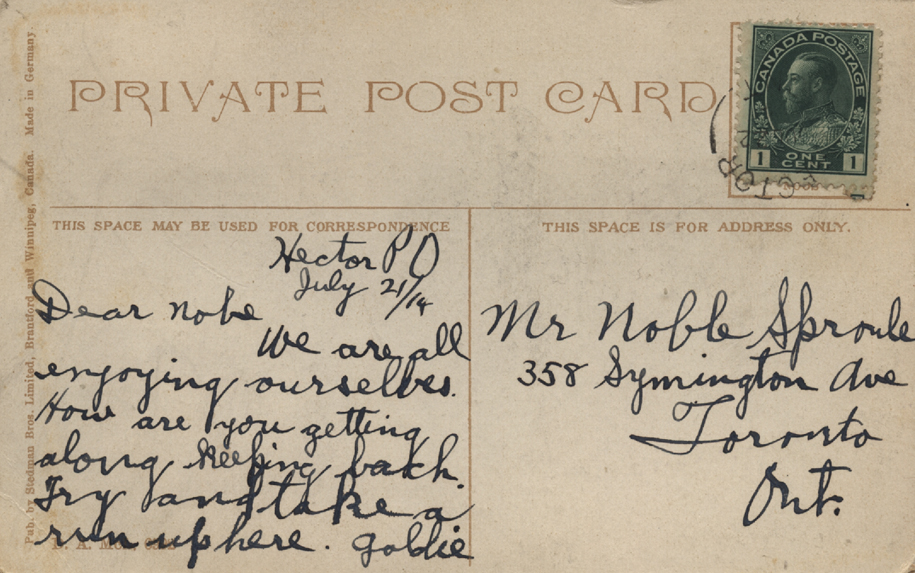 PRIVATE POST CARD
CANADA POSTAGE
1 ONE CENT 1
ECTOR
THIS SPACE MAY BE USED FOR CORRESPONDENCE
THIS SPACE IS FOR ADDRESS ONLY.
Hector P O
July 21/14
Dear Nobe
We are all
enjoying ourselves.
How are you getting
along keeping bach.
Try and take a
run up here. Goldie
Mr Noble Sproule
358 Symington Ave
Toronto
Ont.
Pub. by Stedman Bros. Limited, Brantford and Winnipeg, Canada. Made in Germany.